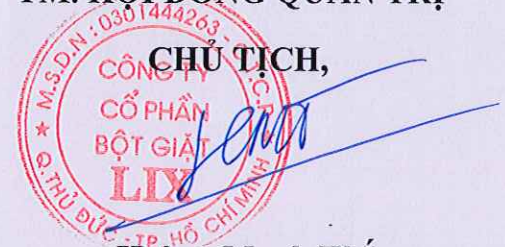 TM. HỘI ĐỒNG QUẢN TRỊ
CHỦ TỊCH,
M.S.D.N : 0301444263 - C.T.C.P
CÔNG TY
CỔ PHẦN
BỘT GIẶT
LIX
Q. THỦ ĐỨC - TP. HỒ CHÍ MINH